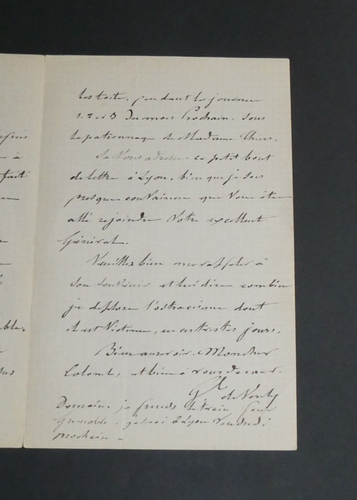 pendant les journées
1. 2 et 3 du mois prochain. sous
le patronnage de Madame
Je vous adresse ce petit bout
de lettre à Lyon, bien que je sois
presque convaincu que vous êtes
allé rejoindre votre excellent
Général.
Veuillez bien me rappeler à
son souvenir et lui dire combien
je déplore l'ostracisme dont
il est victime, en ces tristes jours.
Bien au revoir. Mon cher
Colonel, et bien à vous de cœur.
de
Demain je prends le train pour
Grenoble. à Lyon vendredi
prochain.